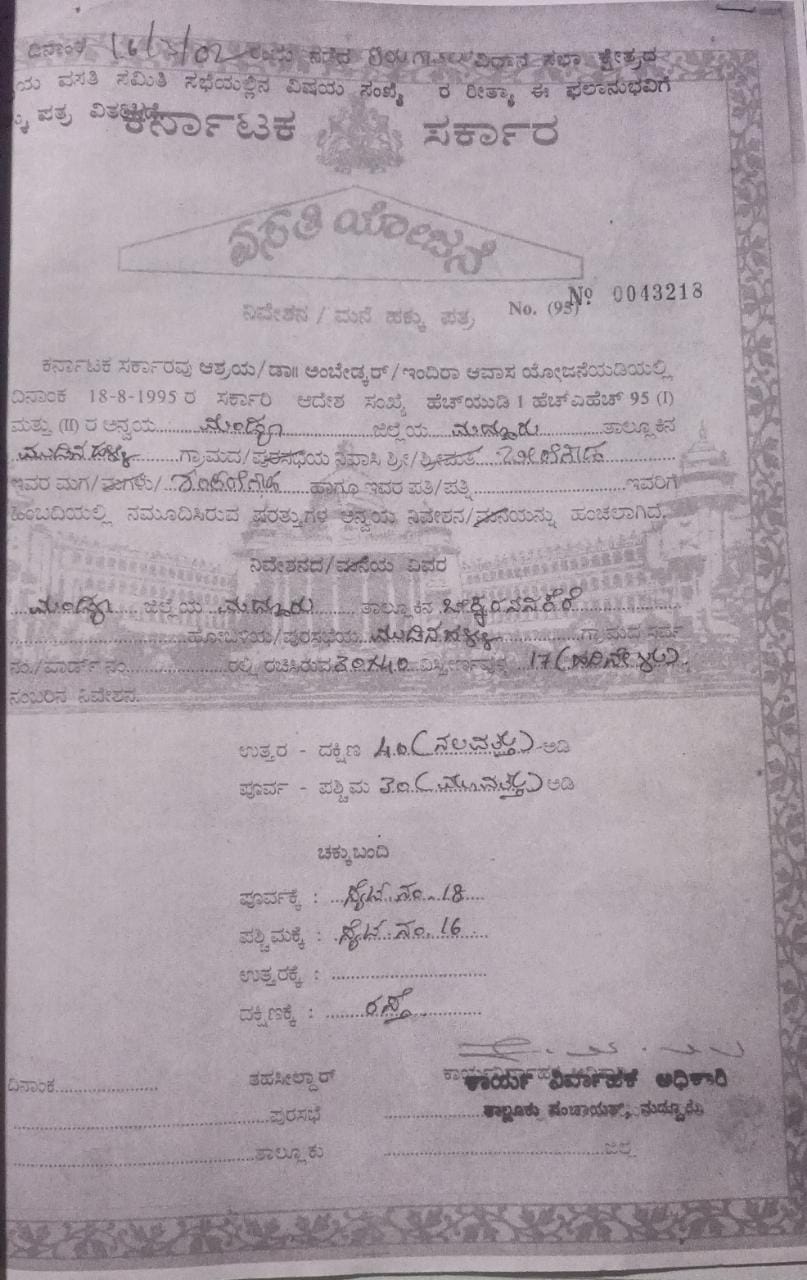 ದಿನಾಂಕ 16/3/02 ರಂದು ನಡೆದ ವಿಧಾನ ಸಭಾ ಕ್ಷೇತ್ರದ
ಯ ವಸತಿ ಸಮಿತಿ ಸಭೆಯಲ್ಲಿನ ವಿಷಯ ಸಂಖ್ಯೆ ರ ರೀತ್ಯಾ ಈ ಫಲಾನುಭವಿಗೆ
ಪತ್ರ
ಕರ್ನಾಟಕ ಸರ್ಕಾರ
ವಸತಿ ಯೋಜನೆ
ನಿವೇಶನ / ಮನೆ ಹಕ್ಕು ಪತ್ರ No. (95) Nº 0043218
ಕರ್ನಾಟಕ ಸರ್ಕಾರವು ಆಶ್ರಯ/ಡಾ॥ ಅಂಬೇಡ್ಕರ್/ಇಂದಿರಾ ಆವಾಸ ಯೋಜನೆಯಡಿಯಲ್ಲಿ
ದಿನಾಂಕ 18-8-1995 ರ ಸರ್ಕಾರಿ ಆದೇಶ ಸಂಖ್ಯೆ ಹೆಚ್‌ಯುಡಿ 1 ಹೆಚ್‌ಎಹೆಚ್ 95 (I)
ಮತ್ತು (II) ರ ಅನ್ವಯ ಮಂಡ್ಯ ಜಿಲ್ಲೆಯ ಮದ್ದೂರು ತಾಲ್ಲೂಕಿನ
ಗ್ರಾಮದ/ಪುರಸಭೆಯ ನಿವಾಸಿ ಶ್ರೀ/ಶ್ರೀಮತಿ
ಇವರ ಮಗ/ಮಗಳು/ ಹಾಗೂ ಇವರ ಪತಿ/ಪತ್ನಿ ಇವರಿಗೆ
ಹಿಂಬದಿಯಲ್ಲಿ ನಮೂದಿಸಿರುವ ಷರತ್ತುಗಳ ಅನ್ವಯ ನಿವೇಶನ/ಮನೆಯನ್ನು ಹಂಚಲಾಗಿದೆ.
ನಿವೇಶನದ/ಮನೆಯ ವಿವರ
ಮಂಡ್ಯ ಜಿಲ್ಲೆಯ ಮದ್ದೂರು ತಾಲ್ಲೂಕಿನ
ಹೋಬಳಿಯ/ಪುರಸಭೆಯ ಗ್ರಾಮದ ಸರ್ವೆ
ನಂ./ವಾರ್ಡ್ ನಂ. ರಲ್ಲಿ ರಚಿಸಿರುವ 30x40 ವಿಸ್ತೀರ್ಣವುಳ್ಳ 17 (ಹದಿನೇಳು)
ನಂಬರಿನ ನಿವೇಶನ.
ಉತ್ತರ - ದಕ್ಷಿಣ 40 (ನಲವತ್ತು) ಅಡಿ
ಪೂರ್ವ - ಪಶ್ಚಿಮ 30 (ಮೂವತ್ತು) ಅಡಿ
ಚಕ್ಕುಬಂದಿ
ಪೂರ್ವಕ್ಕೆ : ಸೈಟ್ ನಂ. 18
ಪಶ್ಚಿಮಕ್ಕೆ : ಸೈಟ್ ನಂ. 16
ಉತ್ತರಕ್ಕೆ :
ದಕ್ಷಿಣಕ್ಕೆ : ರಸ್ತೆ
ದಿನಾಂಕ ತಹಸೀಲ್ದಾರ್ ಕಾರ್ಯ ನಿರ್ವಾಹಕ ಅಧಿಕಾರಿ
ಪುರಸಭೆ ತಾಲ್ಲೂಕು ಪಂಚಾಯತ್, ಮದ್ದೂರು
ತಾಲ್ಲೂಕು ಜಿಲ್ಲೆ